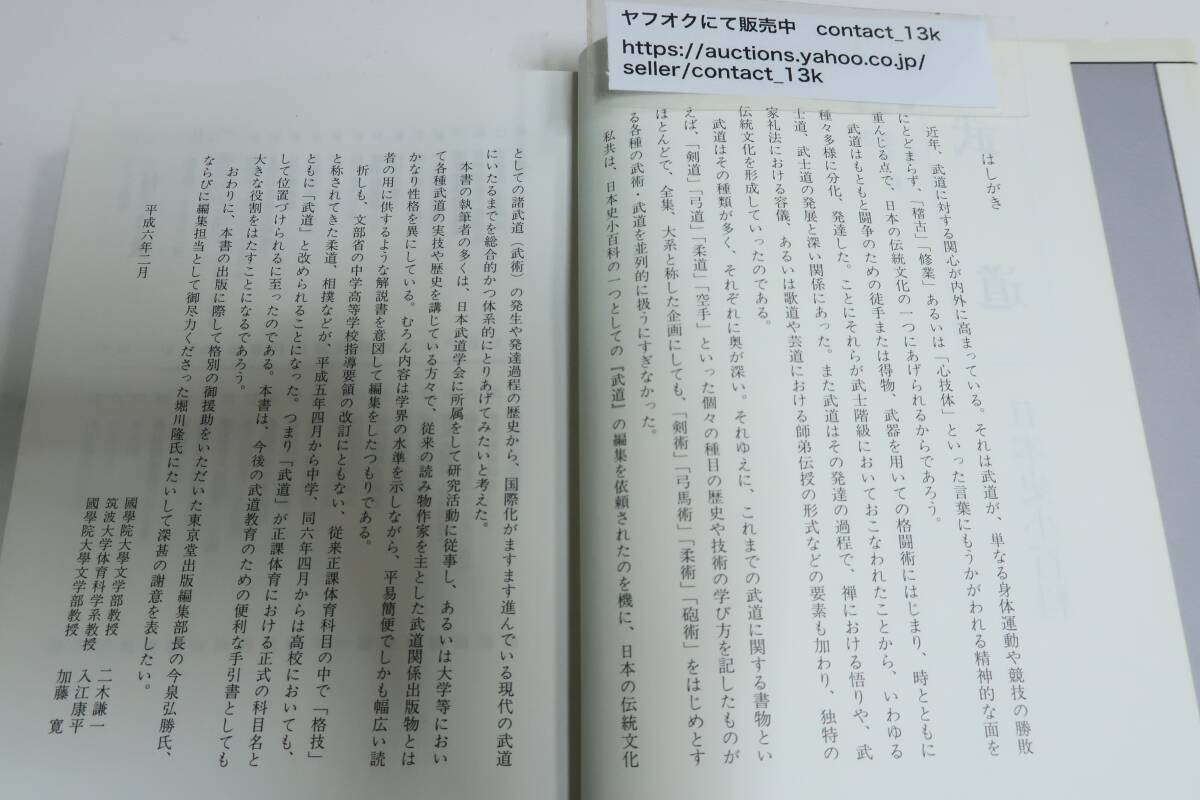 ヤフオクにて販売中 contact_13k
https://auctions.yahoo.co.jp/
seller/contact_13k
はしがき
近年、武道に対する関心が内外に高まっている。それは武道が、単なる身体運動や競技の勝敗
にとどまらず、「稽古」「修業」あるいは「心技体」といった言葉にもうかがわれる精神的な面を
重んじる点で、日本の伝統文化の一つにあげられるからであろう。
武道はもともと闘争のための徒手または得物、武器を用いての格闘術にはじまり、時とともに
種々多様に分化、発達した。ことにそれらが武士階級においておこなわれたことから、いわゆる
士道、武士道の発展と深い関係にあった。また武道はその発達の過程で、禅における悟りや、武
家礼法における容儀、あるいは歌道や芸道における師弟伝授の形式などの要素も加わり、独特の
伝統文化を形成していったのである。
武道はその種類が多く、それぞれに奥が深い。それゆえに、これまでの武道に関する書物とい
えば、「剣道」「弓道」「柔道」「空手」といった個々の種目の歴史や技術の学び方を記したものが
ほとんどで、全集、大系と称した企画にしても、「剣術」「弓馬術」「柔術」「砲術」をはじめとす
る各種の武術・武道を並列的に扱うにすぎなかった。
私共は、日本史小百科の一つとしての『武道』の編集を依頼されたのを機に、日本の伝統文化
としての諸武道（武術）の発生や発達過程の歴史から、国際化がますます進んでいる現代の武道
にいたるまでを総合的かつ体系的にとりあげてみたいと考えた。
本書の執筆者の多くは、日本武道学会に所属をして研究活動に従事し、あるいは大学等におい
て各種武道の実技や歴史を講じている方々で、従来の読み物作家を主とした武道関係出版物とは
かなり性格を異にしている。むろん内容は学界の水準を示しながら、平易簡便でしかも幅広い読
者の用に供するような解説書を意図して編集をしたつもりである。
折しも、文部省の中学高等学校指導要領の改訂にともない、従来正課体育科目の中で「格技」
と称されてきた柔道、相撲などが、平成五年四月から中学、同六年四月からは高校においても、
ともに「武道」と改められることになった。つまり「武道」が正課体育における正式の科目名と
して位置づけられるに至ったのである。本書は、今後の武道教育のための便利な手引書としても
大きな役割をはたすことになるであろう。
おわりに、本書の出版に際して格別の御援助をいただいた東京堂出版編集部長の今泉弘勝氏、
ならびに編集担当として御尽力くださった堀川隆氏にたいして深甚の謝意を表したい。
平成六年二月
國學院大學文学部教授 二木謙一
筑波大学体育科学系教授 入江康平
國學院大學文学部教授 加藤 寛